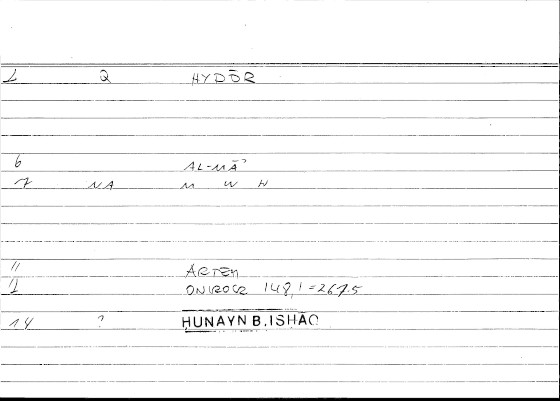 1 Q HYDŌR
6 AL-MĀʾ
7 NA M W H
11 ARTEM
12 ONIROCR 148,1 = 267.5
14 ? HUNAYN B. ISHAQ